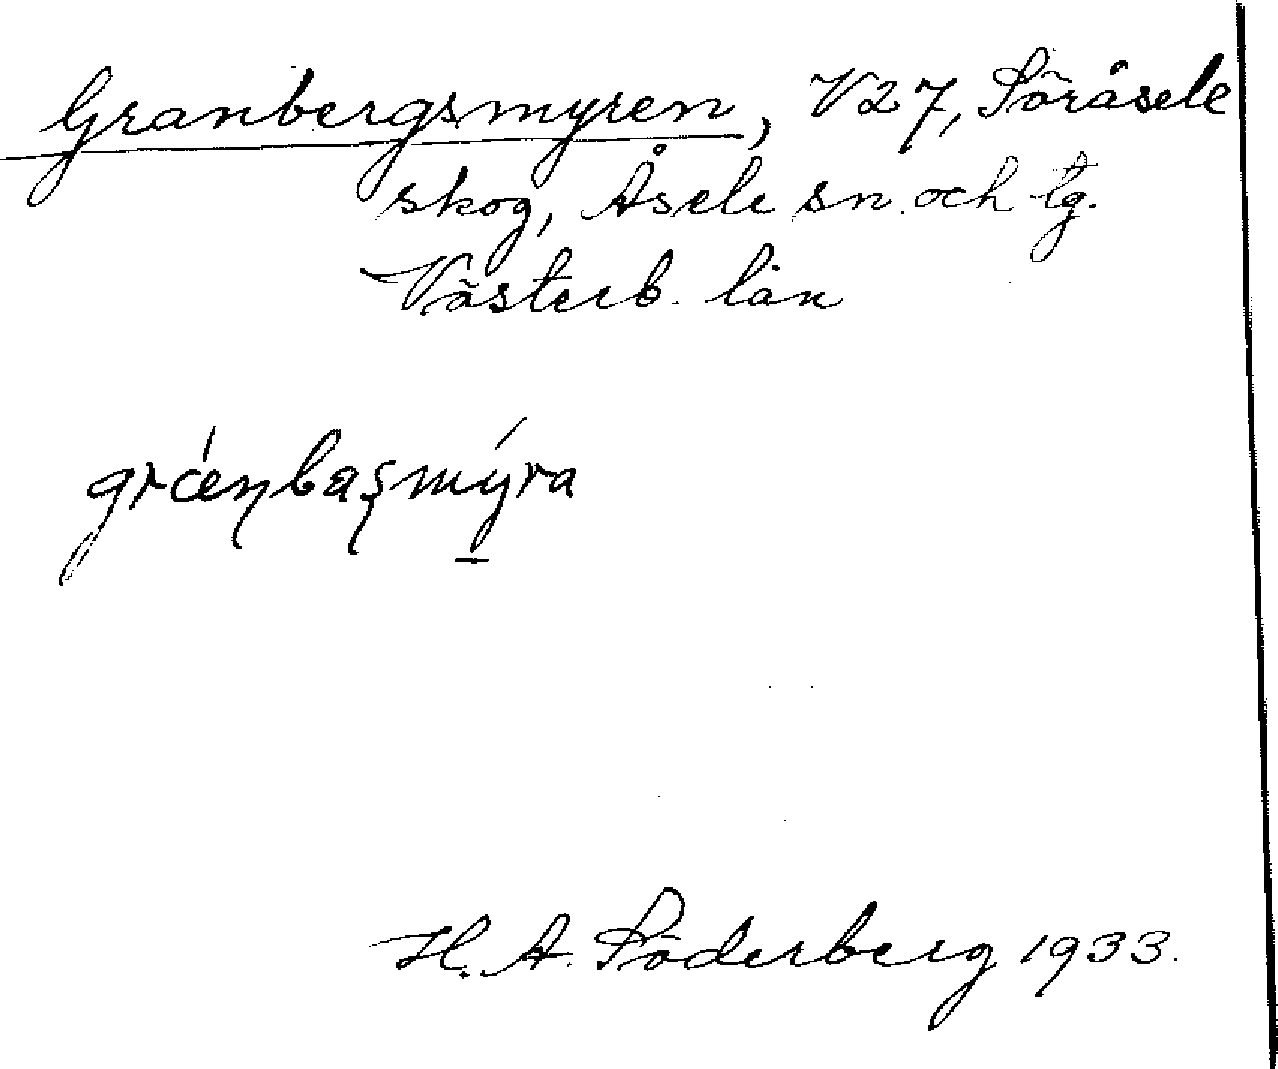 Granbergsmyren, V27, Söråsele
skog, Åsele sn. och lg.
Västerb. län
grænbaʂmýra
H. A. Söderberg 1933.